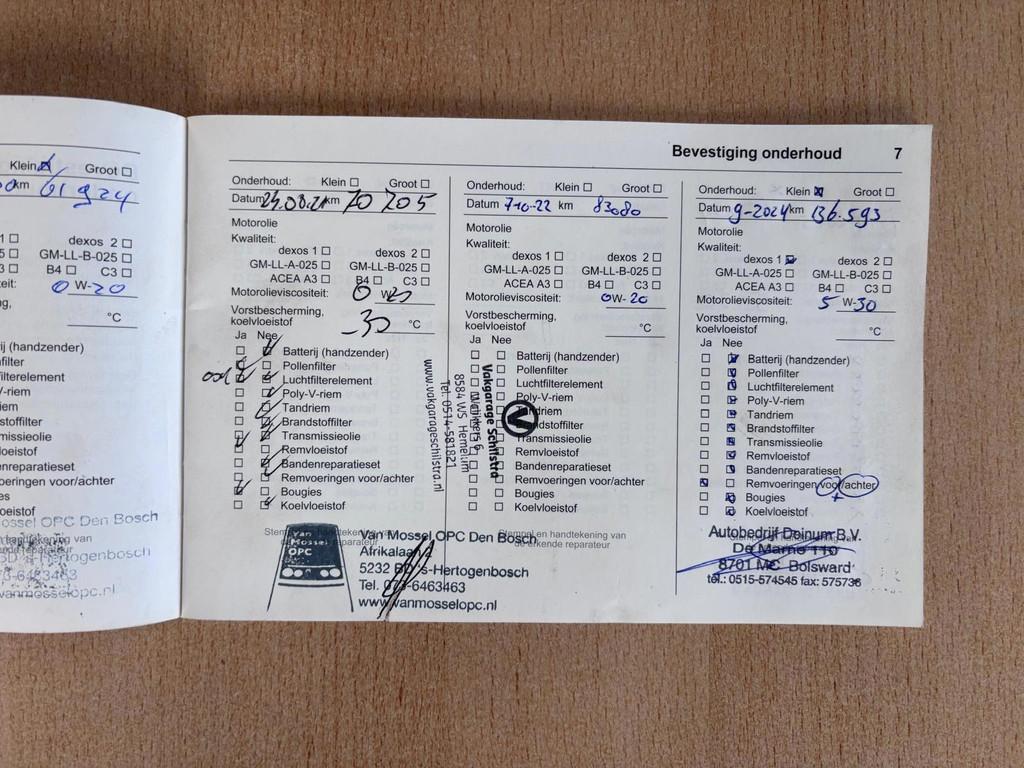 Bevestiging onderhoud 7
Klein Groot
km 61924
dexos 2
GM-LL-B-025
B4 C3
0 W-20
°C
(handzender)
Onderhoud: Klein Groot
Datum km 70 705
Motorolie
Kwaliteit:
dexos 1 dexos 2
GM-LL-A-025 GM-LL-B-025
ACEA A3 B4 C3
Motorolieviscositeit: 0 W
Vorstbescherming,
koelvloeistof -30 °C
Ja Nee
Batterij (handzender)
Pollenfilter
Luchtfilterelement
Poly-V-riem
Tandriem
Brandstoffilter
Transmissieolie
Remvloeistof
Bandenreparatieset
Remvoeringen voor/achter
Bougies
Koelvloeistof
Van Mossel OPC Den Bosch
Afrikalaan
5232 's-Hertogenbosch
Tel. 073-6463463
www.vanmosselopc.nl
Van
Mossel
OPC
Onderhoud: Klein Groot
Datum 7-10-22 km 83080
Motorolie
Kwaliteit:
dexos 1 dexos 2
GM-LL-A-025 GM-LL-B-025
ACEA A3 B4 C3
Motorolieviscositeit: 0W-20
Vorstbescherming,
koelvloeistof °C
Ja Nee
Batterij (handzender)
Pollenfilter
Luchtfilterelement
Poly-V-riem
Tandriem
Brandstoffilter
Transmissieolie
Remvloeistof
Bandenreparatieset
Remvoeringen voor/achter
Bougies
Koelvloeistof
Stempel en handtekening van
de erkende reparateur
Vakgarage Schilstra
8584 WS Hemelum
Tel. 0514-581821
www.vakgarageschilstra.nl
Onderhoud: Klein Groot
Datum 9-2024 km 136.593
Motorolie
Kwaliteit:
dexos 1 dexos 2
GM-LL-A-025 GM-LL-B-025
ACEA A3 B4 C3
Motorolieviscositeit: 5 W-30
Vorstbescherming,
koelvloeistof °C
Ja Nee
Batterij (handzender)
Pollenfilter
Luchtfilterelement
Poly-V-riem
Tandriem
Brandstoffilter
Transmissieolie
Remvloeistof
Bandenreparatieset
Remvoeringen voor/achter
+
Bougies
Koelvloeistof
Autobedrijf Deinum B.V.
De Marne 110
8701 MC Bolsward
tel.: 0515-574545 fax: 575736